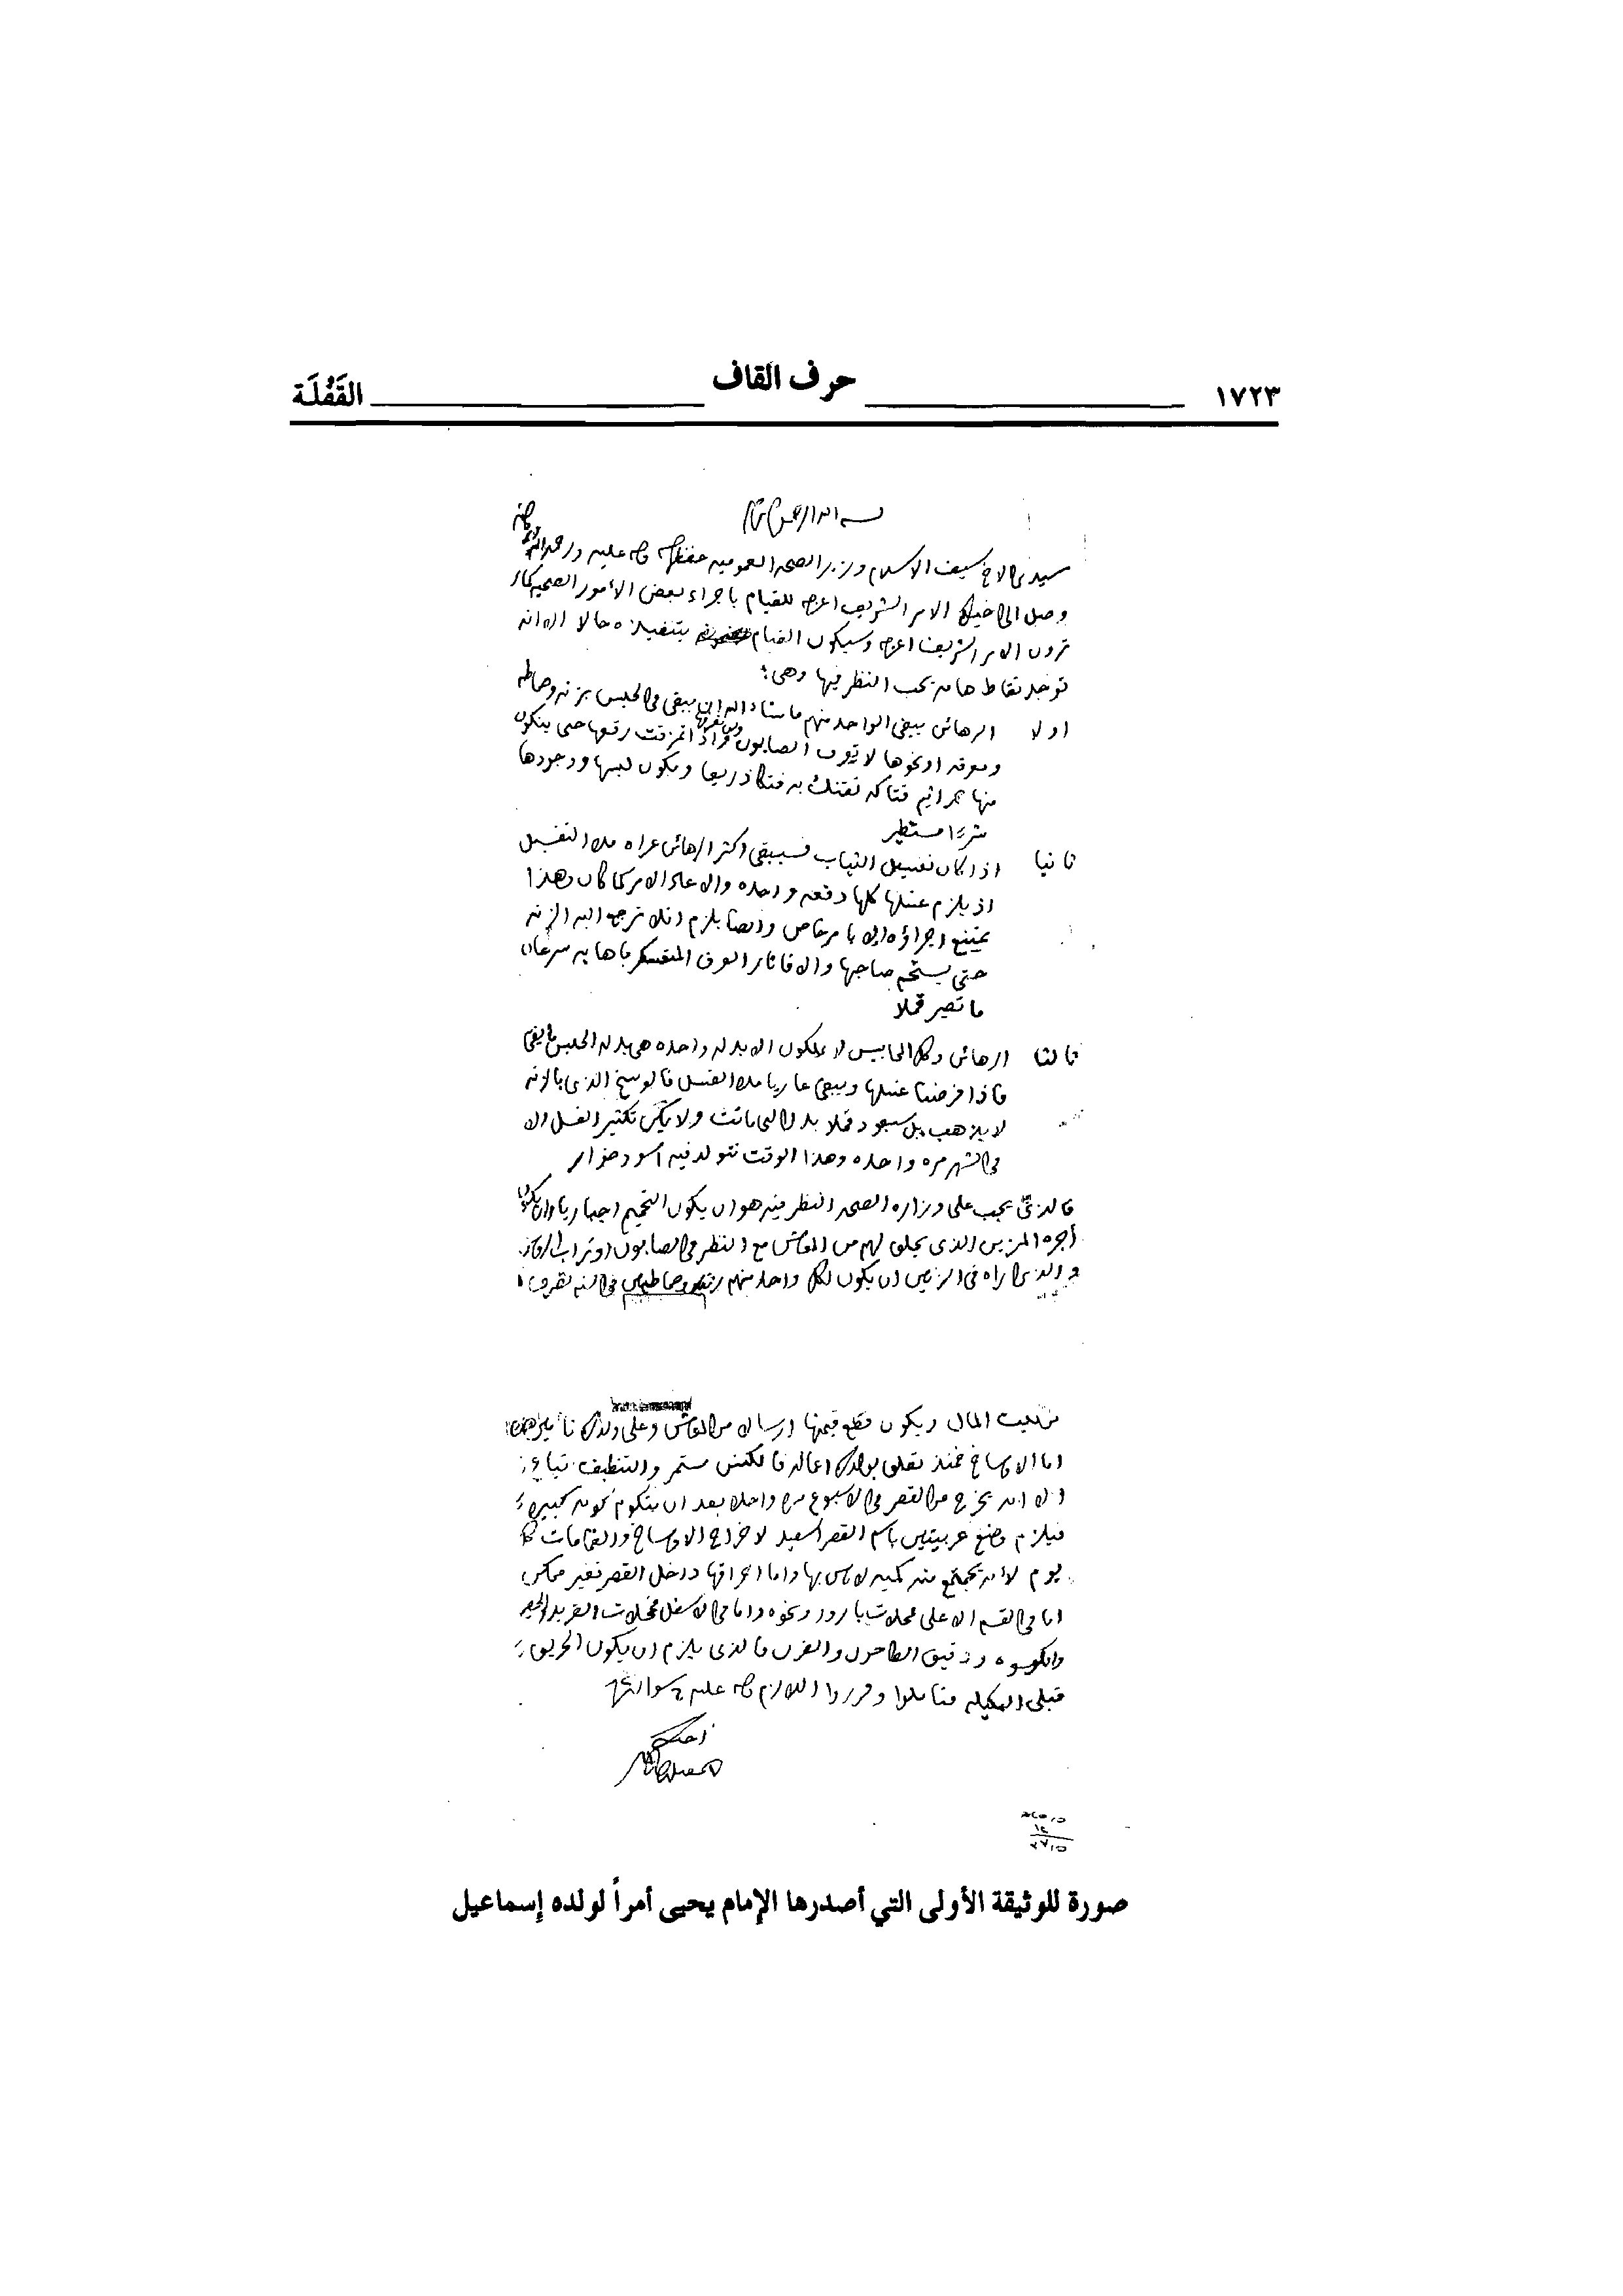 ١٧٢٣ حرف القاف القَفْلَة
بسم الله الرحمن الرحيم
سيدي الاخ سيف الاسلام وزير الصحه العموميه حفظه الله عليه ورحمة الله
وصل الى اخيك الامر الشريف اعزه الله للقيام باجراء بعض الأمور الصحيه كما
ترون الامر الشريف اعزه الله وسيكون القيام بتنفيذه حالا الا انه
توجد نقاط هامه يجب النظر فيها وهي:
اولا الرهائن يبقى الواحد منهم ما شاء الله ان يبقى في الحبس بزنه وصماطه
ومعرقه او نحوها لا يعرف الصابون فاذا تمزقت رقعها حتى يتكون
منها جراثيم فتاكه تفتك به فتكا ذريعا ويكون لبسها ووجودها
شرا مستطير
ثانيا اذا كان تغسيل الثياب فسيبقى اكثر الرهائن عراه مدة التغسيل
اذ يلزم غسلها كلها دفعه واحده والا عاد الامر كما كان وهذا
يمتنع اجراؤه الا بامر خاص وايضا يلزم ان لا ترجع اليه الزنه
حتى يستحم صاحبها والا فاثار العرق بها به سرعان
ما تصير قملا
ثالثا الرهائن وكل المحابيس لا يملكون الا بدله واحده هي بدله الحبس
فاذا فرضنا غسلها ويبقى عاريا مدة الغسل فالوسخ الذي بالزنه
لا يذهب بل سيعود قملا بدل التي ماتت ولا يمكن تكثير الغسل الا
في الشهر مره واحده وهذا الوقت تتولد فيه اسود ضوار
فالذي يجب على وزاره الصحه النظر فيه هو ان يكون التحميم اجباريا وان يكون
أجره المزين الذي يحلق لهم من المعاش مع النظر في الصابون او تراب
والذي اراه في الزنين ان يكون لكل واحد منهم في السنه
من بيت المال ويكون قطع قيمتها ارسالا من المعاش وعلى ولدك
اما الاوساخ فمنذ تعلق بولدك اعماله فالكنس مستمر والتنظيف
الا انه يخرج من القصر في الاسبوع مره واحده بعد ان يتكوم كومه كبيره
فيلزم وضع عربيتين باسم القصر السعيد لاخراج الاوساخ والقمامات كل
يوم لأنه تجتمع منه كميه لا باس بها واما احراقها داخل القصر فغير ممكن
اما في القسم الاعلى محلات بارود ونحوه واما في الاسفل فمحلات
ودقيق الطاحون والفرن فالذي يلزم ان يكون الحريق
قبلي فتاملوا وقرروا اللازم
اخيكم
صورة للوثيقة الأولى التي أصدرها الإمام يحيى أمراً لولده إسماعيل